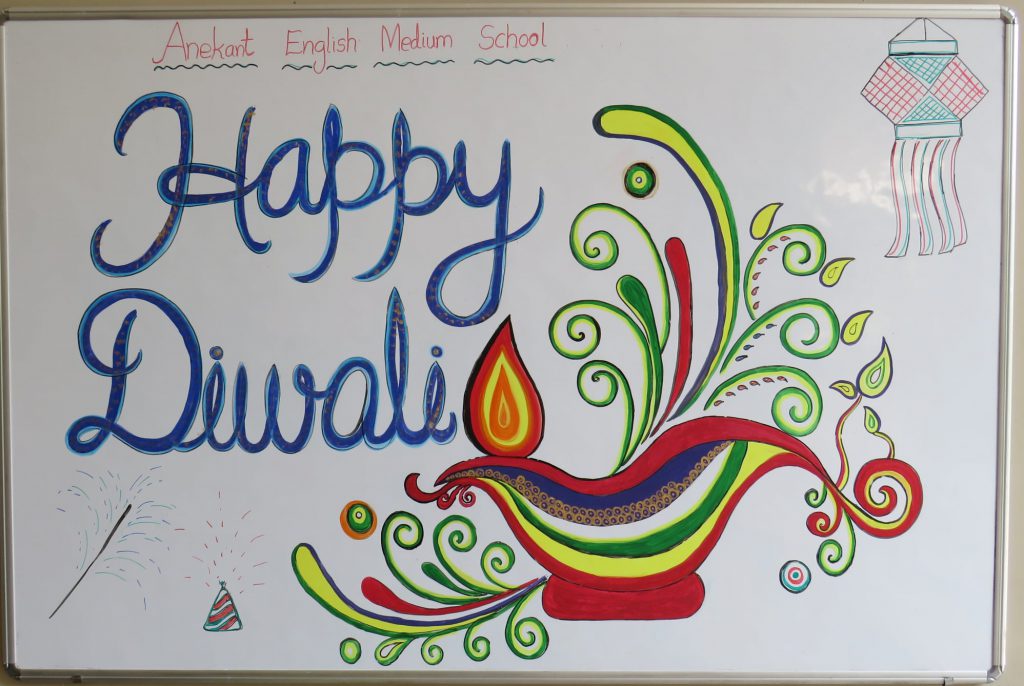 Anekant English Medium School
Happy
Diwali